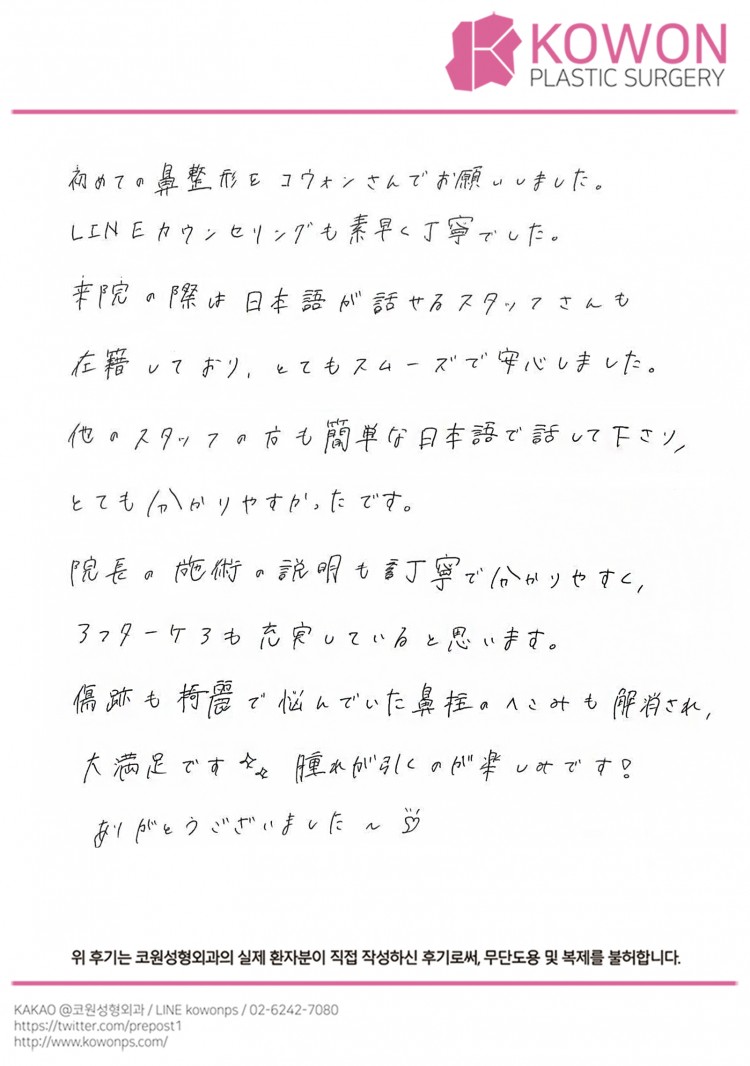 KOWON
PLASTIC SURGERY
初めての鼻整形をコウォンさんでお願いしました。
LINEカウンセリングも素早く丁寧でした。
来院の際は日本語が話せるスタッフさんも
在籍しており、とてもスムーズで安心しました。
他のスタッフの方も簡単な日本語で話して下さり、
とても分かりやすかったです。
院長の施術の説明も丁寧で分かりやすく、
アフターケアも充実していると思います。
傷跡も綺麗で悩んでいた鼻柱のへこみも解消され、
大満足です☆☆ 腫れが引くのが楽しみです!
ありがとうございました~♡
위 후기는 코원성형외과의 실제 환자분이 직접 작성하신 후기로써, 무단도용 및 복제를 불허합니다.
KAKAO @코원성형외과 / LINE kowonps / 02-6242-7080
https://twitter.com/prepost1
http://www.kowonps.com/